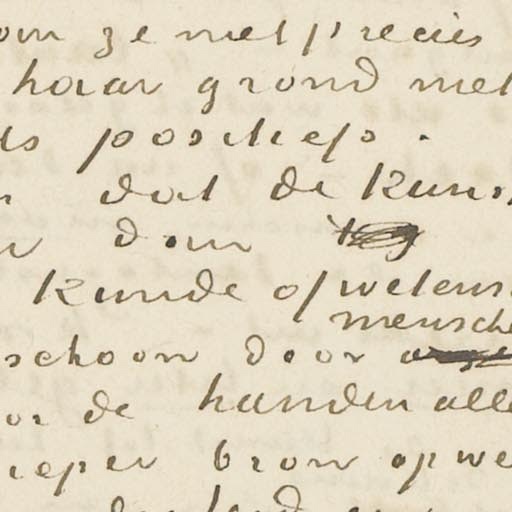 om ze met precies
haar grond met
ls
dat de kuns
dan
kunde of wetens
mensche
schoon door
or de handen alle
ieper bron opwe